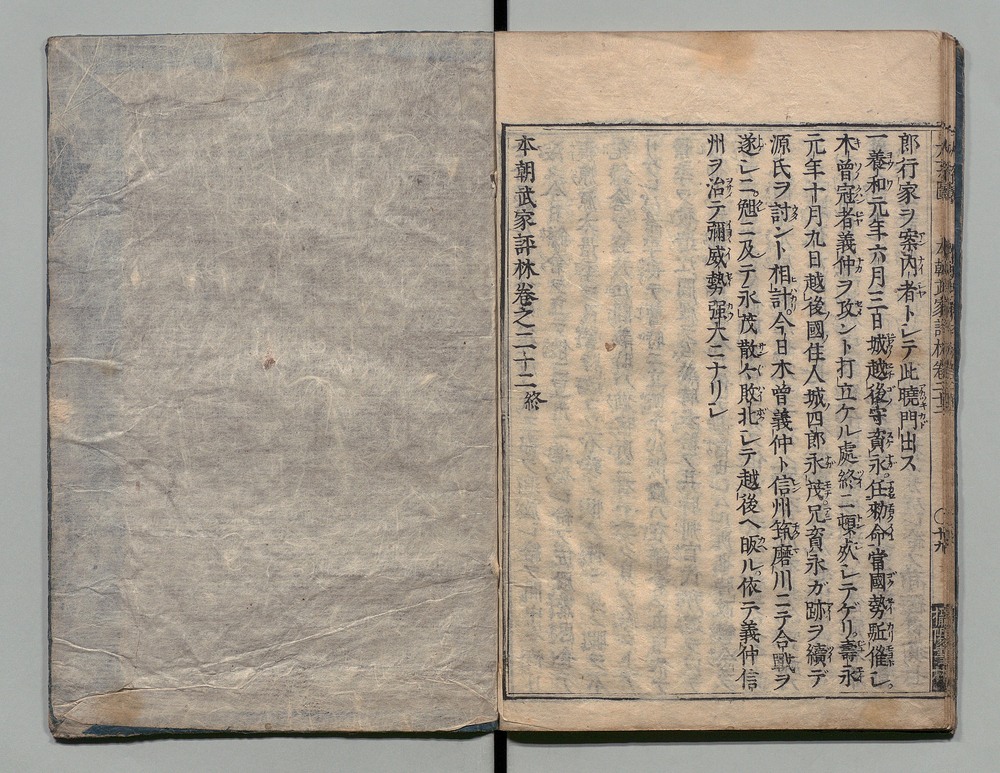 郎行家ヲ案内者トシテ此曉門出ス
一養和元年六月三日城越後守資永。任勅命當國勢駈催シ。
木曾冠者義仲ヲ攻ント打立ケル處終ニ頓死シテゲリ。壽永
元年十月九日越後國住人城四郎永茂。兄資永ガ跡ヲ續デ
源氏ヲ討ント相計。今日木曾義仲ト信州筑磨川ニテ合戰ヲ
遂シニ。兝ニ及テ永茂散々敗北シテ越後ヘ皈ル。依テ義仲信
州ヲ治テ彌威勢强大ニナリシ
本朝武家評林卷之二十二終